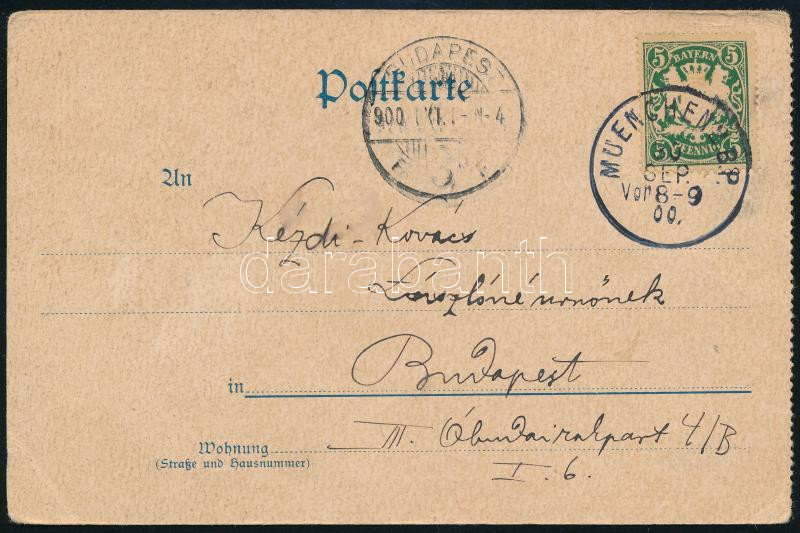 Postkarte
BUDAPEST
900
4
5 5
BAYERN
PFENNIG
5 5
MUENCHEN B.P
30
SEP.
Vor 8-9
00.
An
Kézdi-Kovács
Lászlóné úrnőnek
darabanth
in Budapest
Wohnung III. Óbudairakpart 4/B
(Straße und Hausnummer)
I. 6.